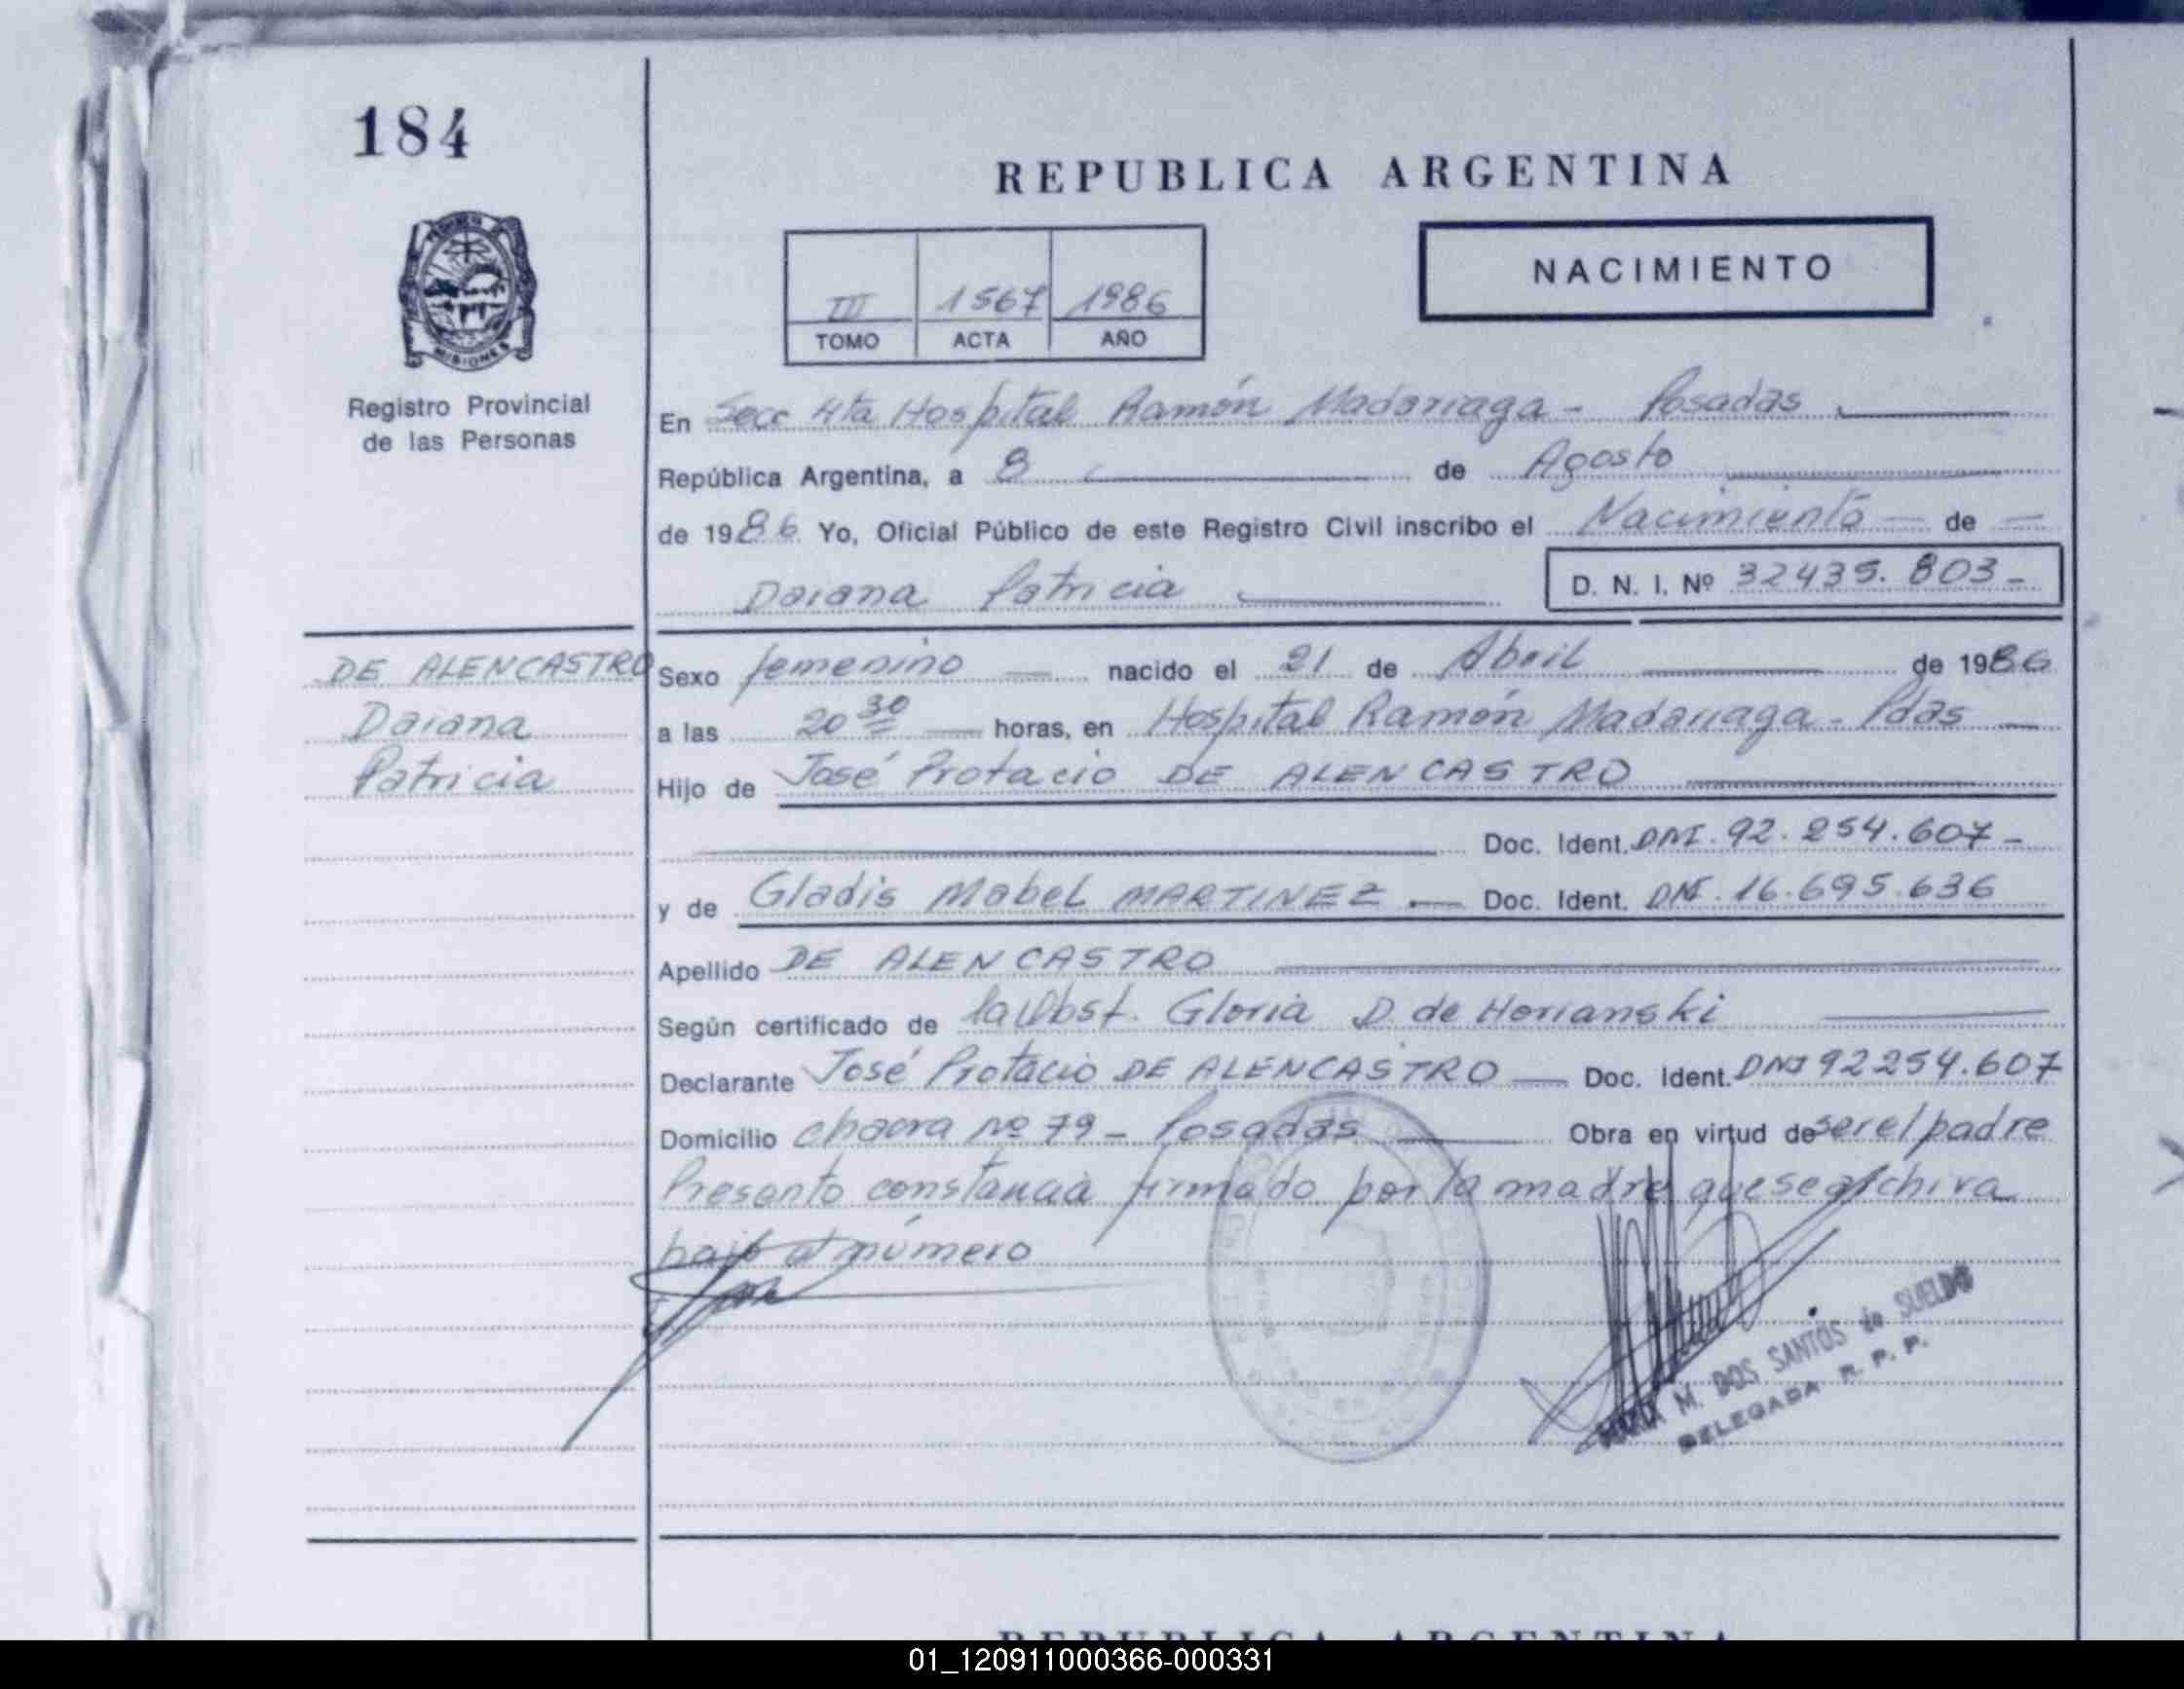 184
REPUBLICA ARGENTINA
NACIMIENTO
III 1567 1986
TOMO ACTA AÑO
MISIONES
Registro Provincial
de las Personas
En Secc 4ta Hospital Ramón Madariaga - Posadas
República Argentina, a 8 de Agosto
de 1986 Yo, Oficial Público de este Registro Civil inscribo el Nacimiento de
Daiana Patricia
D. N. I. Nº 32435.803-
DE ALENCASTRO
Daiana
Patricia
Sexo femenino nacido el 21 de Abril de 1986
a las 20 30 horas, en Hospital Ramón Madariaga - Pdas
Hijo de José Protacio DE ALENCASTRO
Doc. Ident. DNI. 92.254.607-
y de Gladis Mabel MARTINEZ Doc. Ident. DNI. 16.695.636
Apellido DE ALENCASTRO
Según certificado de la Obst. Gloria D. de Horianski
Declarante José Protacio DE ALENCASTRO Doc. Ident. DNI 92254.607
Domicilio chacra nº 79 - Posadas Obra en virtud de ser el padre
Presento constancia firmado por la madre que se archiva
bajo el número
MARIA M. DOS SANTOS de SUELDO
DELEGADA R. P. P.
REPUBLICA ARGENTINA
01_120911000366-000331